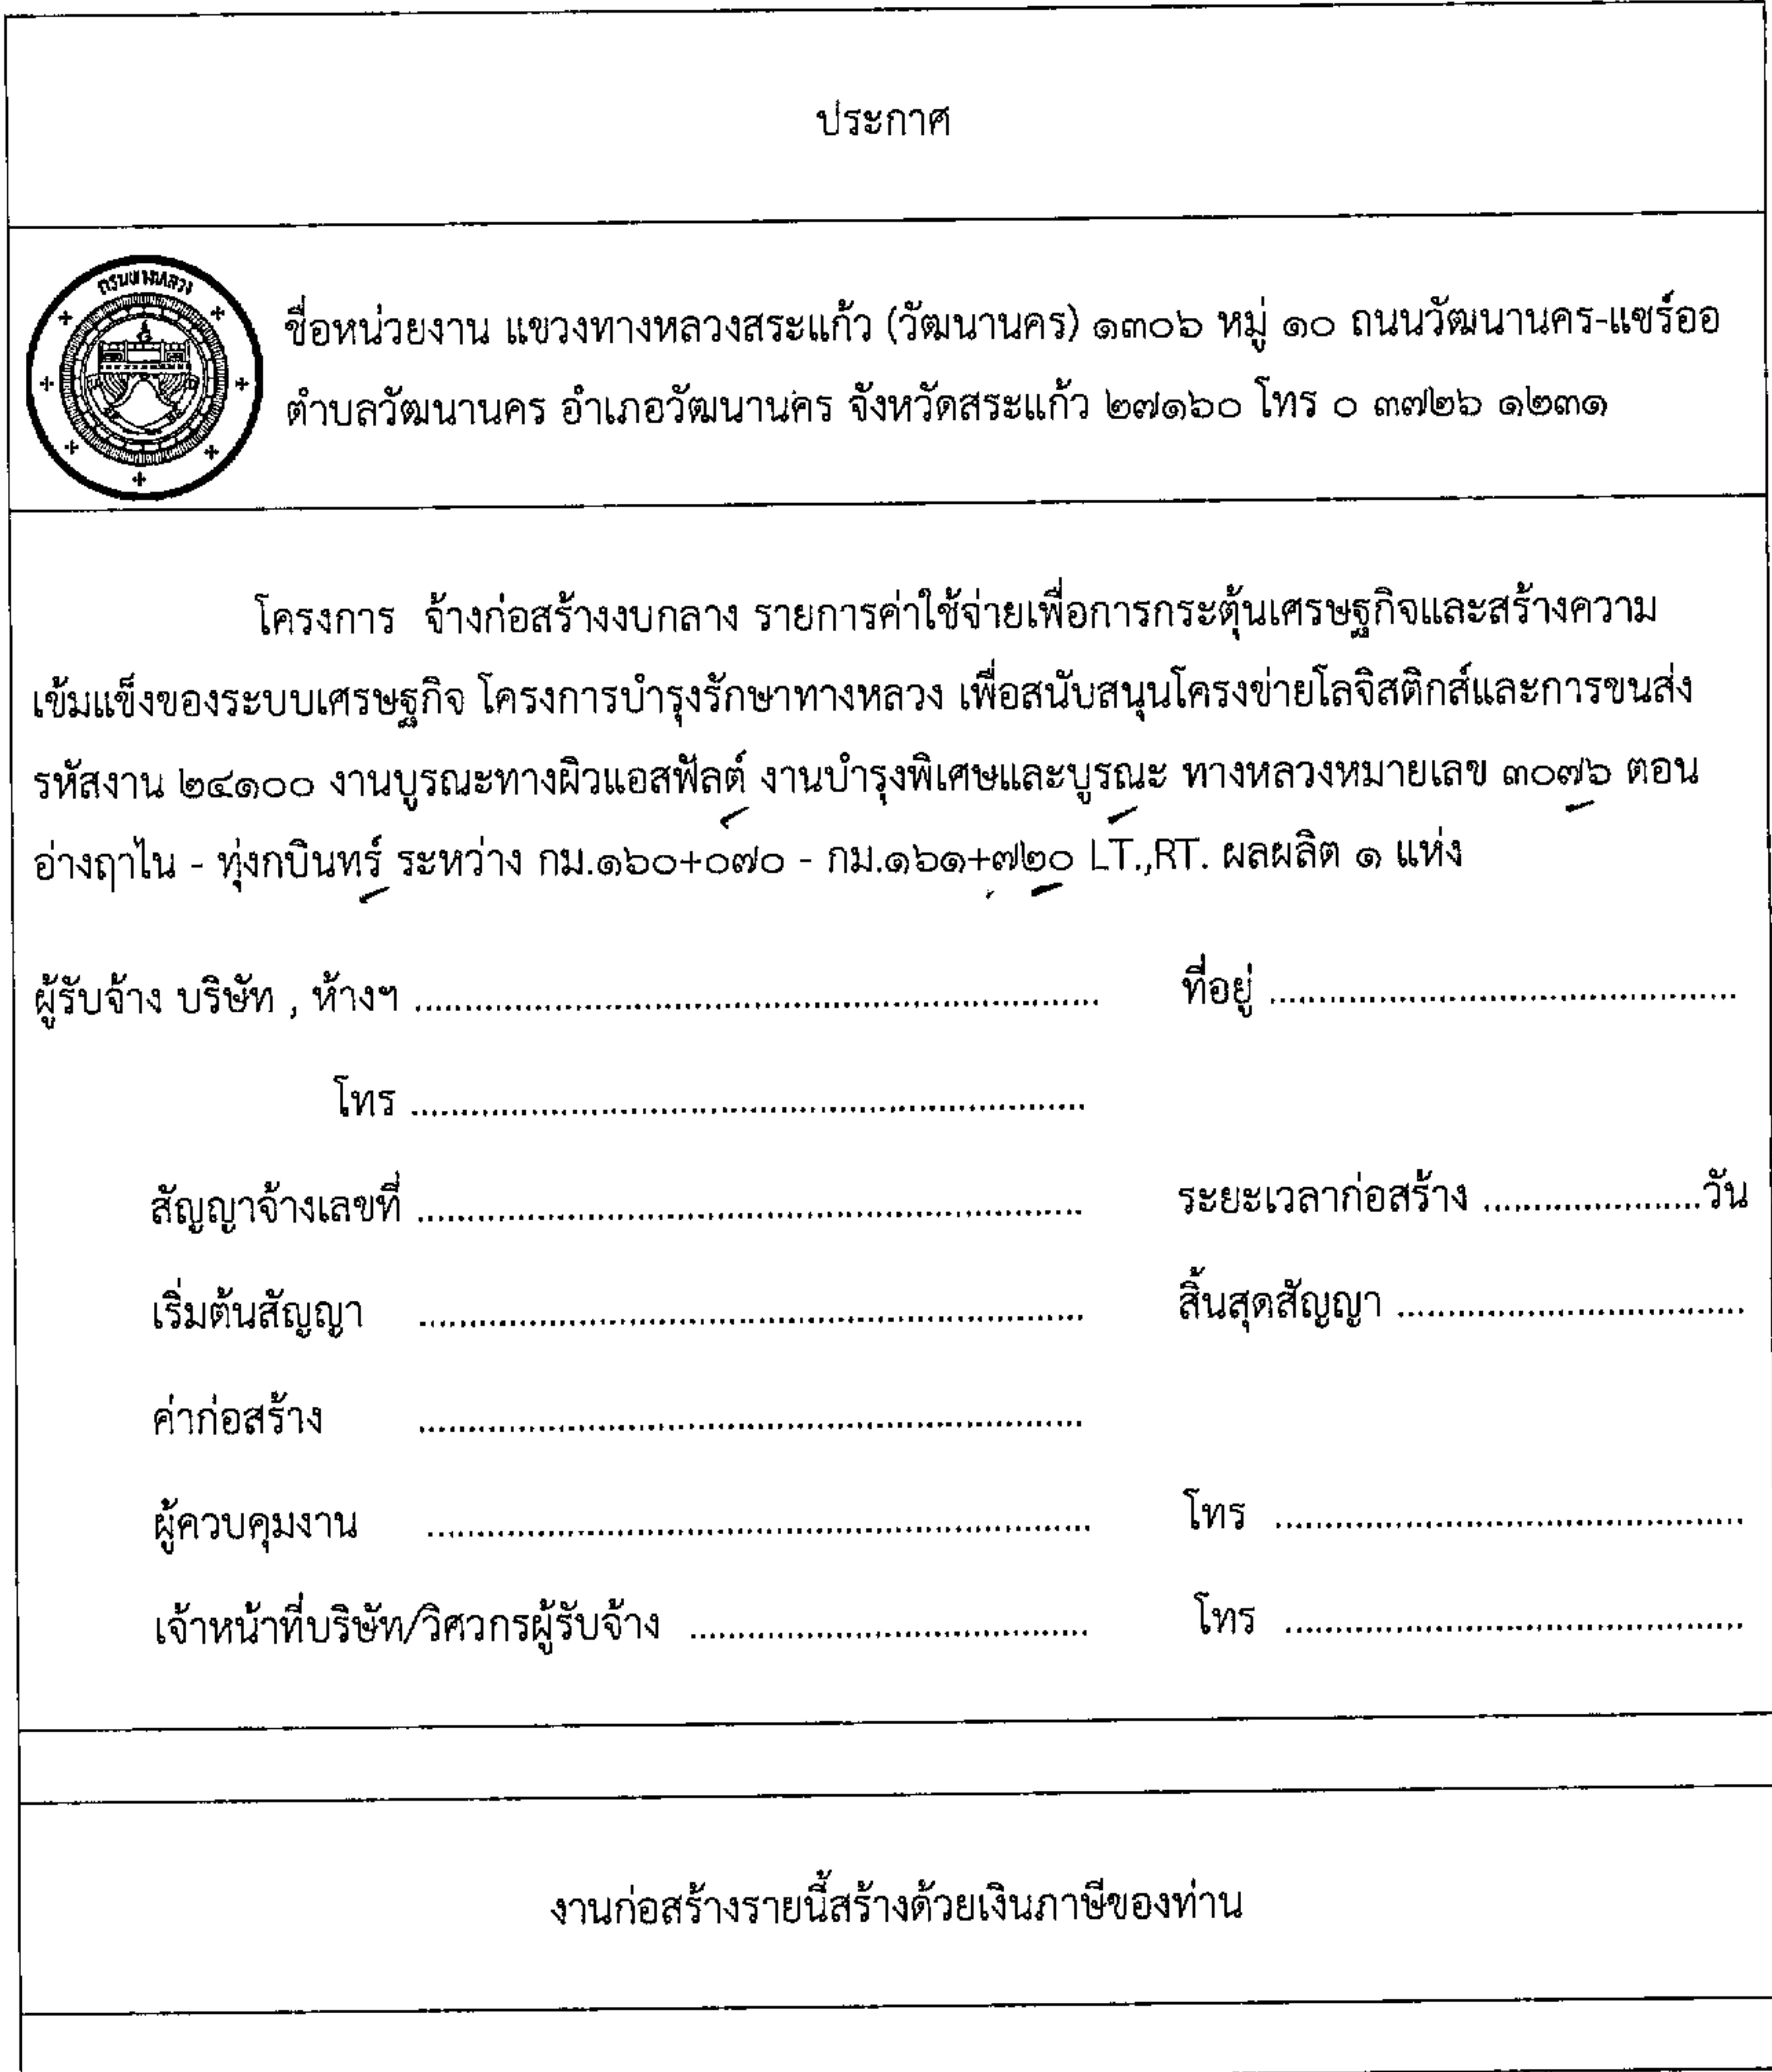 ประกาศ
กรมทางหลวง
ชื่อหน่วยงาน แขวงทางหลวงสระแก้ว (วัฒนานคร) ๑๓๐๖ หมู่ ๑๐ ถนนวัฒนานคร-แซร์ออ
ตำบลวัฒนานคร อำเภอวัฒนานคร จังหวัดสระแก้ว ๒๗๑๖๐ โทร ๐ ๓๗๒๖ ๑๒๓๑
โครงการ จ้างก่อสร้างงบกลาง รายการค่าใช้จ่ายเพื่อการกระตุ้นเศรษฐกิจและสร้างความ
เข้มแข็งของระบบเศรษฐกิจ โครงการบำรุงรักษาทางหลวง เพื่อสนับสนุนโครงข่ายโลจิสติกส์และการขนส่ง
รหัสงาน ๒๔๑๐๐ งานบูรณะทางผิวแอสฟัลต์ งานบำรุงพิเศษและบูรณะ ทางหลวงหมายเลข ๓๐๗๖ ตอน
อ่างฤาไน - ทุ่งกบินทร์ ระหว่าง กม.๑๖๐+๐๗๐ - กม.๑๖๑+๗๒๐ LT.,RT. ผลผลิต ๑ แห่ง
ผู้รับจ้าง บริษัท , ห้างฯ ........................................ ที่อยู่ ........................................
โทร ........................................
สัญญาจ้างเลขที่ ........................................ ระยะเวลาก่อสร้าง ......................วัน
เริ่มต้นสัญญา ........................................ สิ้นสุดสัญญา ..................................
ค่าก่อสร้าง ........................................
ผู้ควบคุมงาน ........................................ โทร ........................................
เจ้าหน้าที่บริษัท/วิศวกรผู้รับจ้าง ........................................ โทร ........................................
งานก่อสร้างรายนี้สร้างด้วยเงินภาษีของท่าน